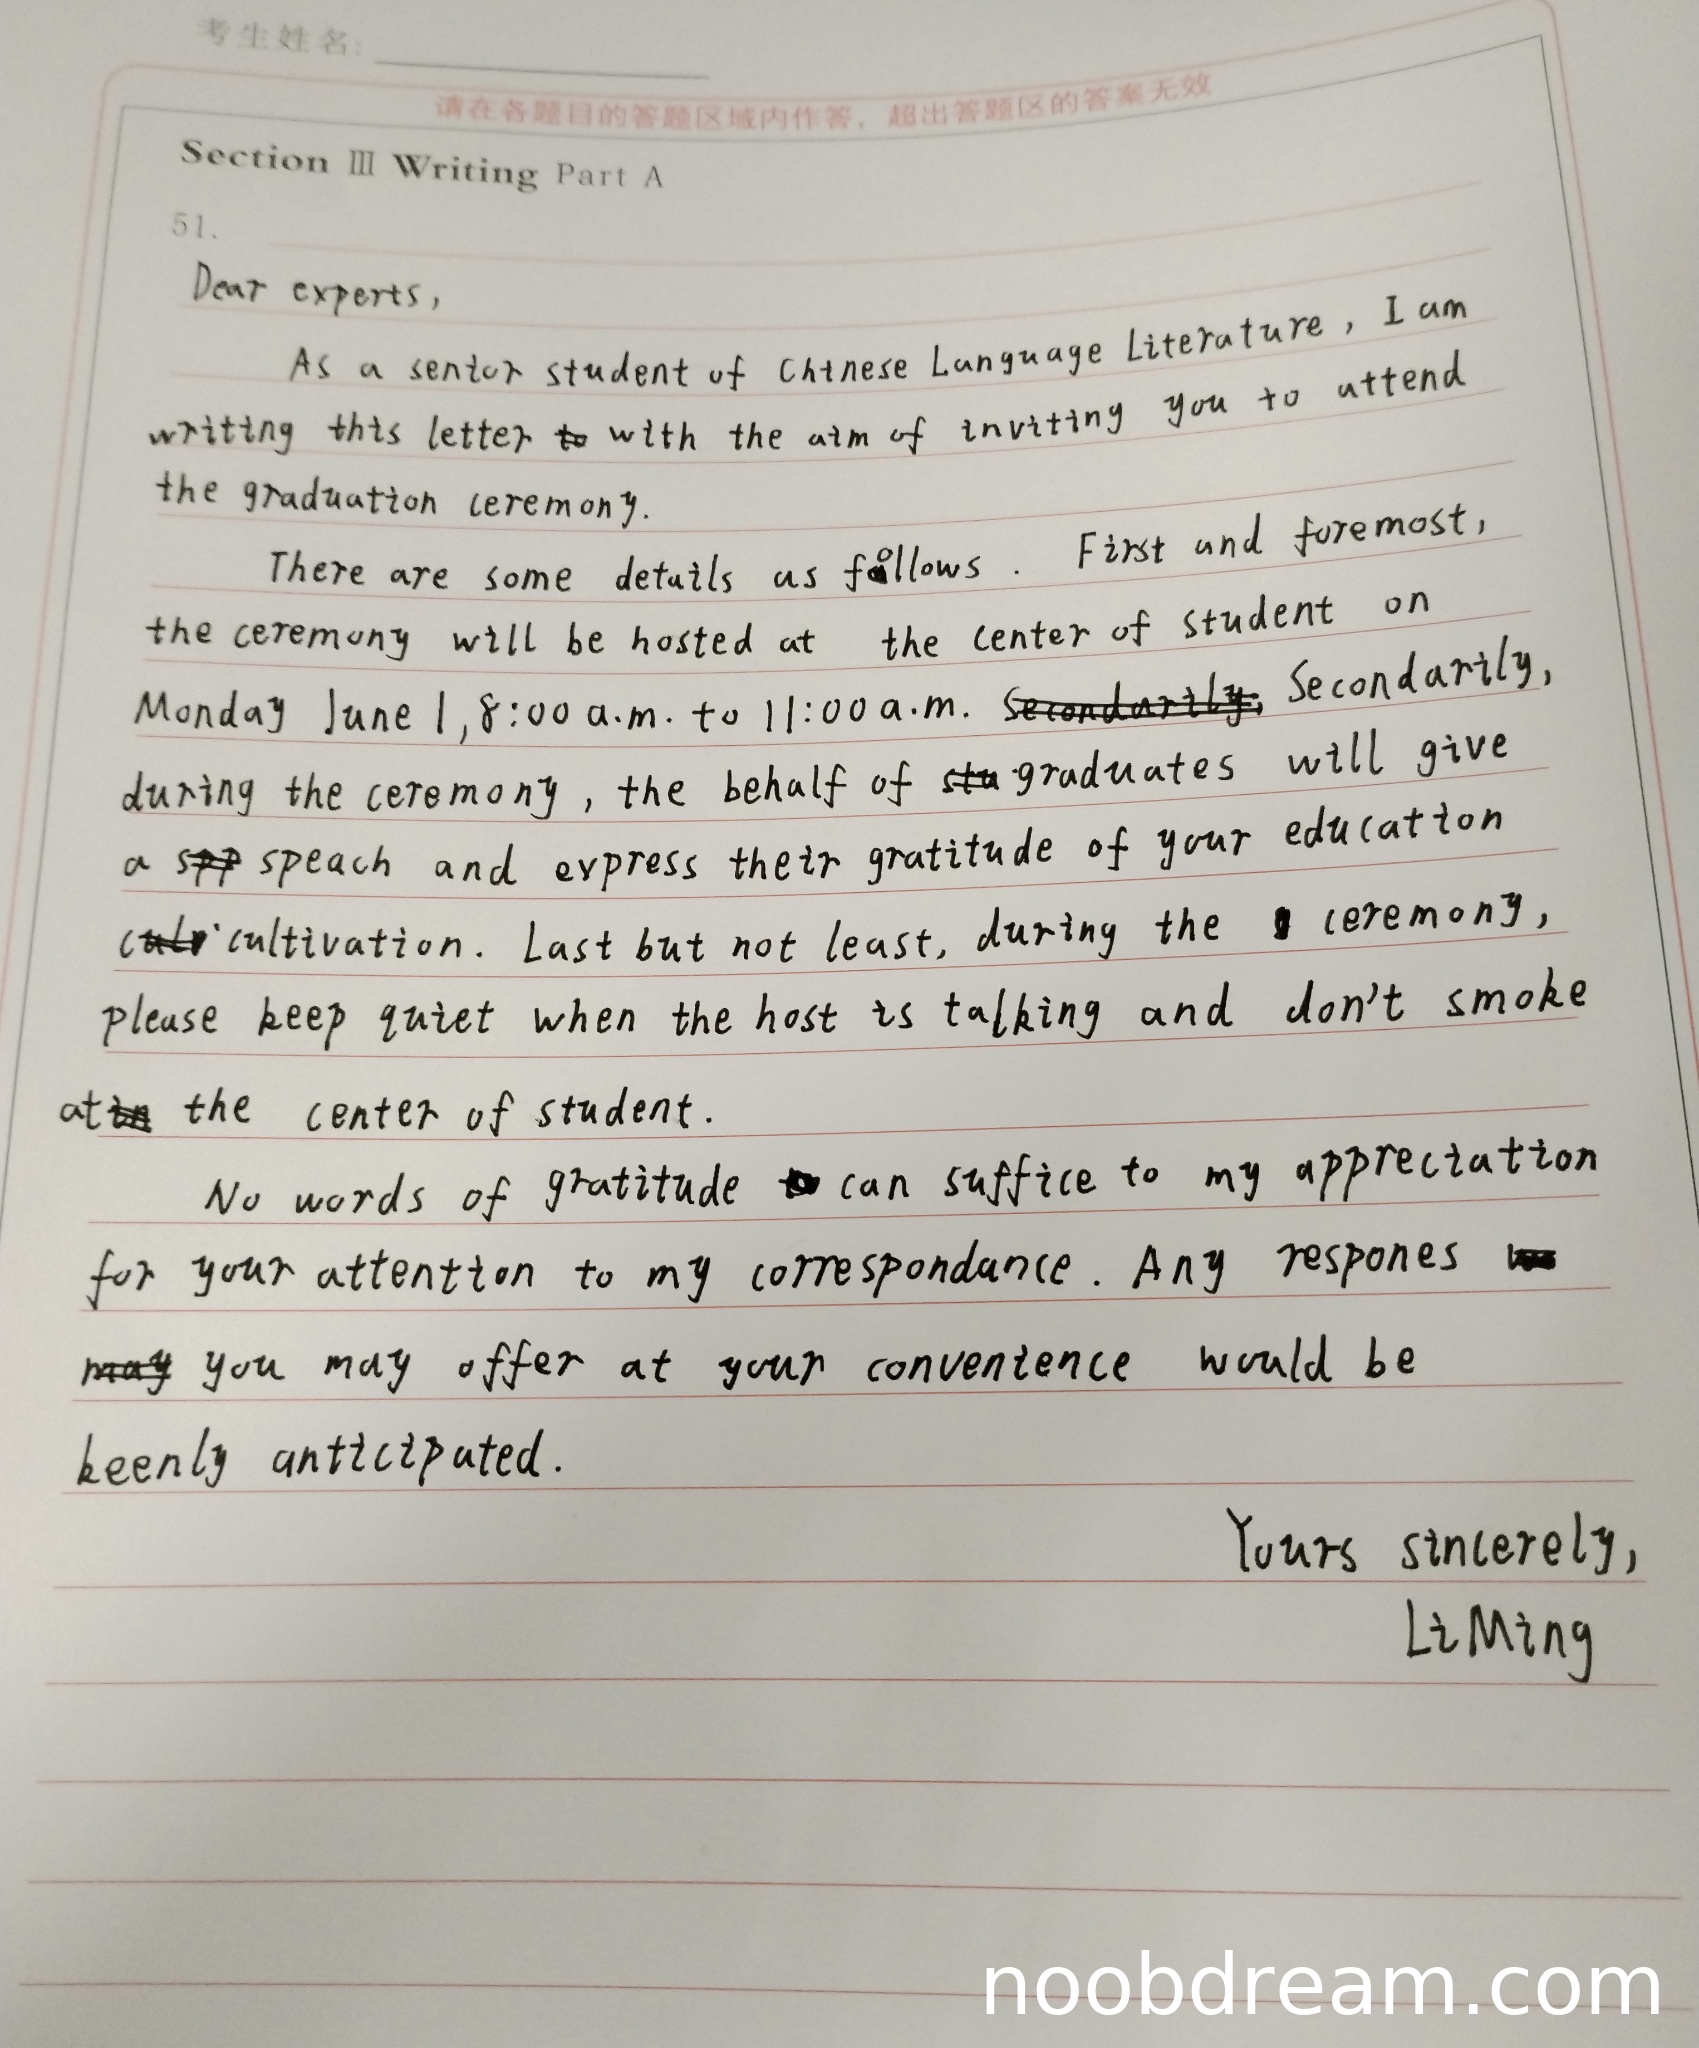 考生姓名:
请在各题目的答题区域内作答，超出答题区的答案无效
Section Ⅲ Writing Part A
51.
Dear experts,
As a senior student of Chinese Language Literature, I am
writing this letter to with the aim of inviting you to attend
the graduation ceremony.
There are some details as follows. First and foremost,
the ceremony will be hosted at the center of student on
Monday June 1, 8:00 a.m. to 11:00 a.m. Secondarily, Secondarily,
during the ceremony, the behalf of stu graduates will give
a spp speach and express their gratitude of your education
cultivation. Last but not least, during the ceremony,
please keep quiet when the host is talking and don't smoke
at in the center of student.
No words of gratitude can suffice to my appreciation
for your attention to my correspondance. Any respones
may you may offer at your convenience would be
keenly anticipated.
Yours sincerely,
Li Ming
noobdream.com